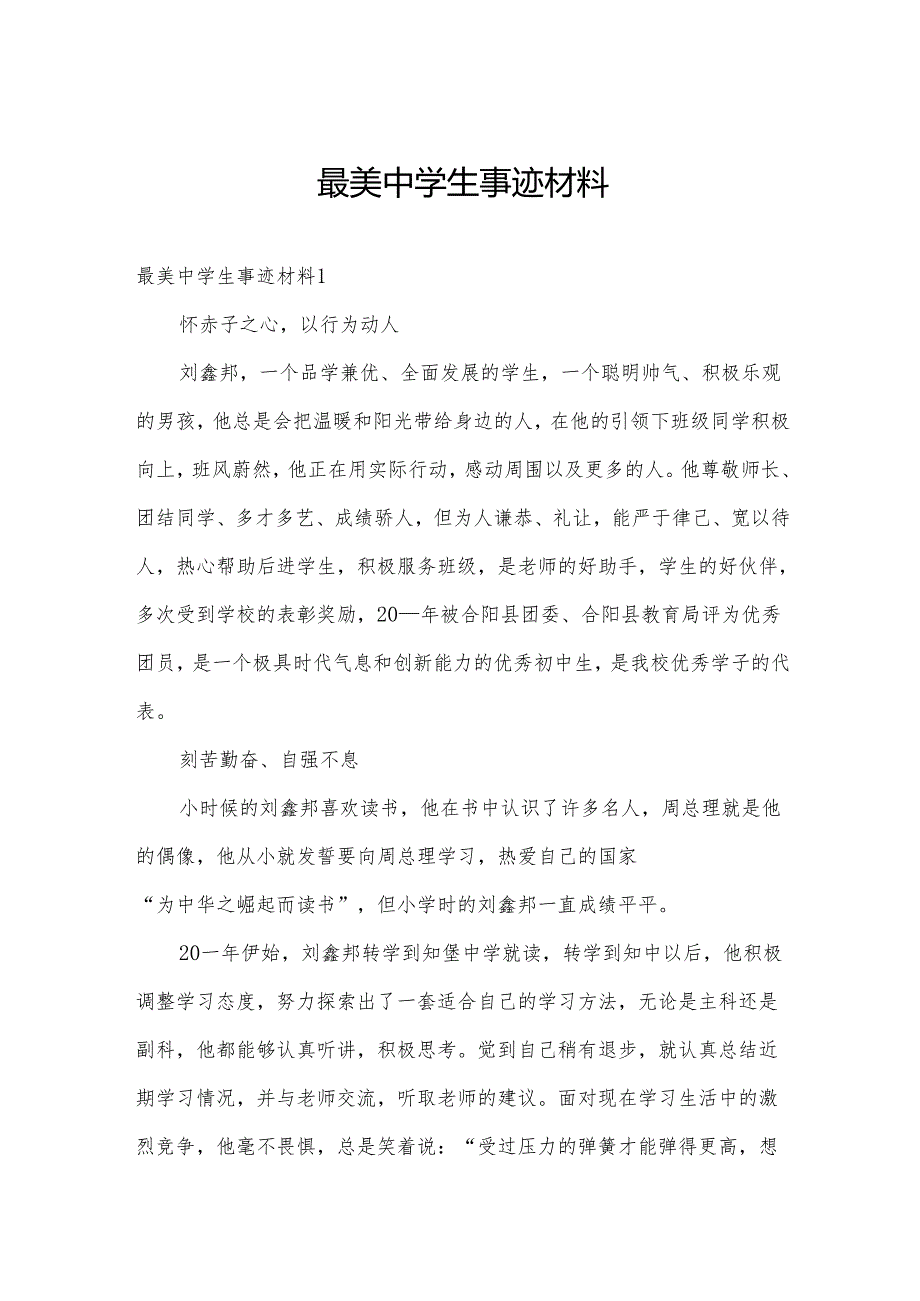 最美中学生事迹材料
最美中学生事迹材料1
怀赤子之心，以行为动人
刘鑫邦，一个品学兼优、全面发展的学生，一个聪明帅气、积极乐观
的男孩，他总是会把温暖和阳光带给身边的人，在他的引领下班级同学积极
向上，班风蔚然，他正在用实际行动，感动周围以及更多的人。他尊敬师长、
团结同学、多才多艺、成绩骄人，但为人谦恭、礼让，能严于律己、宽以待
人，热心帮助后进学生，积极服务班级，是老师的好助手，学生的好伙伴，
多次受到学校的表彰奖励，20—年被合阳县团委、合阳县教育局评为优秀
团员，是一个极具时代气息和创新能力的优秀初中生，是我校优秀学子的代
表。
刻苦勤奋、自强不息
小时候的刘鑫邦喜欢读书，他在书中认识了许多名人，周总理就是他
的偶像，他从小就发誓要向周总理学习，热爱自己的国家
“为中华之崛起而读书”，但小学时的刘鑫邦一直成绩平平。
20一年伊始，刘鑫邦转学到知堡中学就读，转学到知中以后，他积极
调整学习态度，努力探索出了一套适合自己的学习方法，无论是主科还是
副科，他都能够认真听讲，积极思考。觉到自己稍有退步，就认真总结近
期学习情况，并与老师交流，听取老师的建议。面对现在学习生活中的激
烈竞争，他毫不畏惧，总是笑着说：“受过压力的弹簧才能弹得更高，想